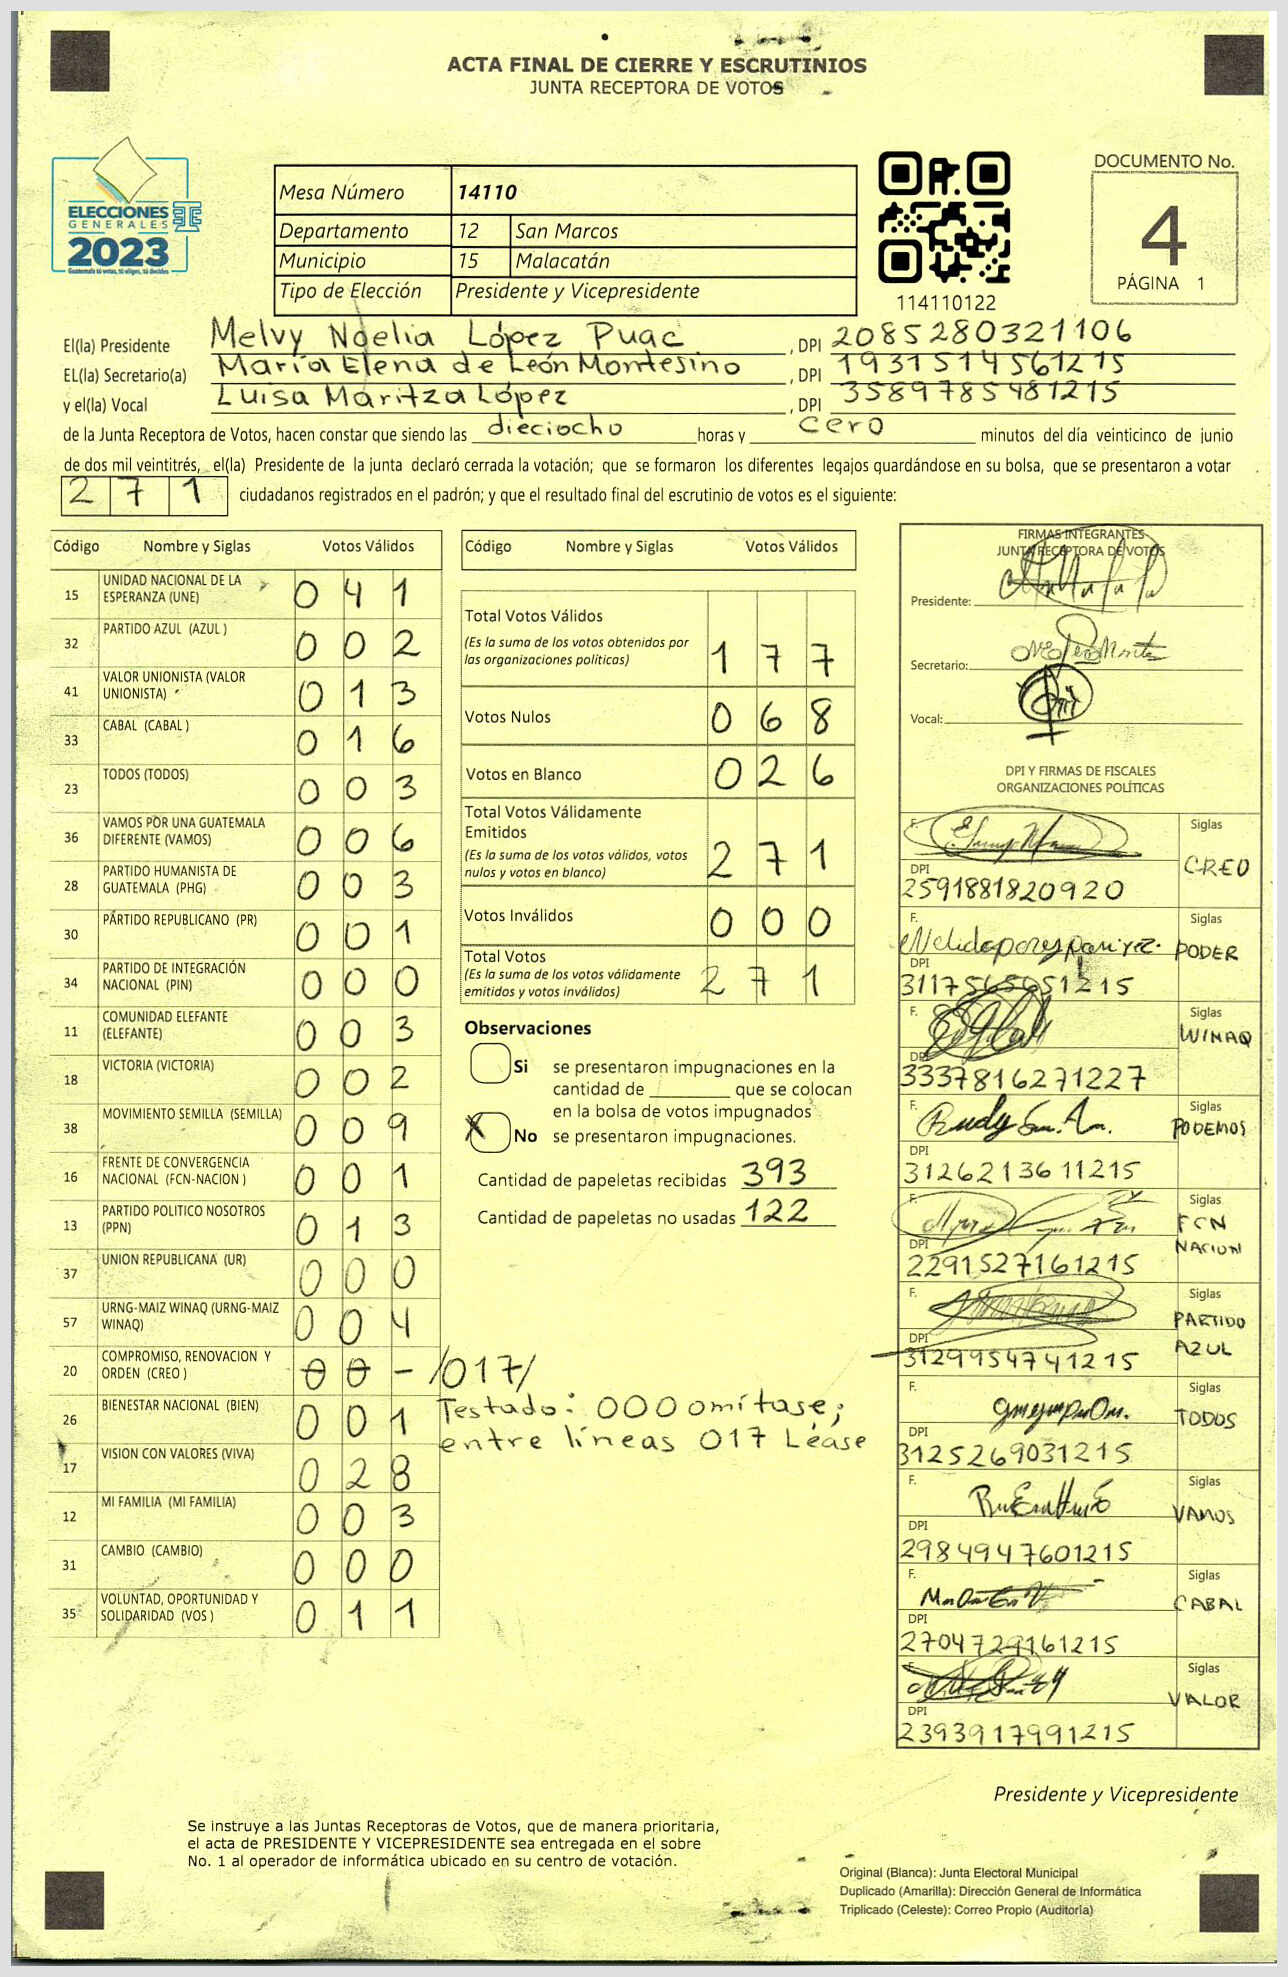 ACTA FINAL DE CIERRE Y ESCRUTINIOS
JUNTA RECEPTORA DE VOTOS
ELECCIONES
GENERALES
2023
Guatemala tú votas, tú eliges, tú decides
Mesa Número 14110
Departamento 12 San Marcos
Municipio 15 Malacatán
Tipo de Elección Presidente y Vicepresidente
114110122
DOCUMENTO No.
4
PÁGINA 1
El(la) Presidente Melvy Noelia López Puac, DPI 2085280321106
EL(la) Secretario(a) María Elena de León Montesino, DPI 1931514561215
y el(la) Vocal Luisa Maritza López, DPI 3589785481215
de la Junta Receptora de Votos, hacen constar que siendo las dieciocho horas y cero minutos del día veinticinco de junio
de dos mil veintitrés, el(la) Presidente de la junta declaró cerrada la votación; que se formaron los diferentes legajos guardándose en su bolsa, que se presentaron a votar
271 ciudadanos registrados en el padrón; y que el resultado final del escrutinio de votos es el siguiente:
Código Nombre y Siglas Votos Válidos
15 UNIDAD NACIONAL DE LA ESPERANZA (UNE) 041
32 PARTIDO AZUL (AZUL ) 002
41 VALOR UNIONISTA (VALOR UNIONISTA) 013
33 CABAL (CABAL ) 016
23 TODOS (TODOS) 003
36 VAMOS POR UNA GUATEMALA DIFERENTE (VAMOS) 006
28 PARTIDO HUMANISTA DE GUATEMALA (PHG) 003
30 PARTIDO REPUBLICANO (PR) 001
34 PARTIDO DE INTEGRACIÓN NACIONAL (PIN) 000
11 COMUNIDAD ELEFANTE (ELEFANTE) 003
18 VICTORIA (VICTORIA) 002
38 MOVIMIENTO SEMILLA (SEMILLA) 009
16 FRENTE DE CONVERGENCIA NACIONAL (FCN-NACION ) 001
13 PARTIDO POLITICO NOSOTROS (PPN) 013
37 UNION REPUBLICANA (UR) 000
57 URNG-MAIZ WINAQ (URNG-MAIZ WINAQ) 004
20 COMPROMISO, RENOVACION Y ORDEN (CREO ) 00- /017/
Testado: 000 omítase;
entre líneas 017 Léase
26 BIENESTAR NACIONAL (BIEN) 001
17 VISION CON VALORES (VIVA) 028
12 MI FAMILIA (MI FAMILIA) 003
31 CAMBIO (CAMBIO) 000
35 VOLUNTAD, OPORTUNIDAD Y SOLIDARIDAD (VOS ) 011
Código Nombre y Siglas Votos Válidos
Total Votos Válidos
(Es la suma de los votos obtenidos por las organizaciones políticas) 177
Votos Nulos 068
Votos en Blanco 026
Total Votos Válidamente Emitidos
(Es la suma de los votos válidos, votos nulos y votos en blanco) 271
Votos Inválidos 000
Total Votos
(Es la suma de los votos válidamente emitidos y votos inválidos) 271
Observaciones
Si se presentaron impugnaciones en la
cantidad de ________ que se colocan
en la bolsa de votos impugnados
X No se presentaron impugnaciones.
Cantidad de papeletas recibidas 393
Cantidad de papeletas no usadas 122
FIRMAS INTEGRANTES
JUNTA RECEPTORA DE VOTOS
Presidente:
Secretario:
Vocal:
DPI Y FIRMAS DE FISCALES
ORGANIZACIONES POLÍTICAS
F. Siglas CREO
DPI 2591881820920
F. Siglas PODER
DPI 3117565651215
F. Siglas WINAQ
DPI 3337816271227
F. Siglas PODEMOS
DPI 3126213611215
F. Siglas FCN NACION
DPI 2291527161215
F. Siglas PARTIDO AZUL
DPI 3129954741215
F. Siglas TODOS
DPI 3125269031215
F. Siglas VAMOS
DPI 2984947601215
F. Siglas CABAL
DPI 2704729161215
F. Siglas VALOR
DPI 2393917991215
Presidente y Vicepresidente
Se instruye a las Juntas Receptoras de Votos, que de manera prioritaria,
el acta de PRESIDENTE Y VICEPRESIDENTE sea entregada en el sobre
No. 1 al operador de informática ubicado en su centro de votación.
Original (Blanca): Junta Electoral Municipal
Duplicado (Amarilla): Dirección General de Informática
Triplicado (Celeste): Correo Propio (Auditoría)